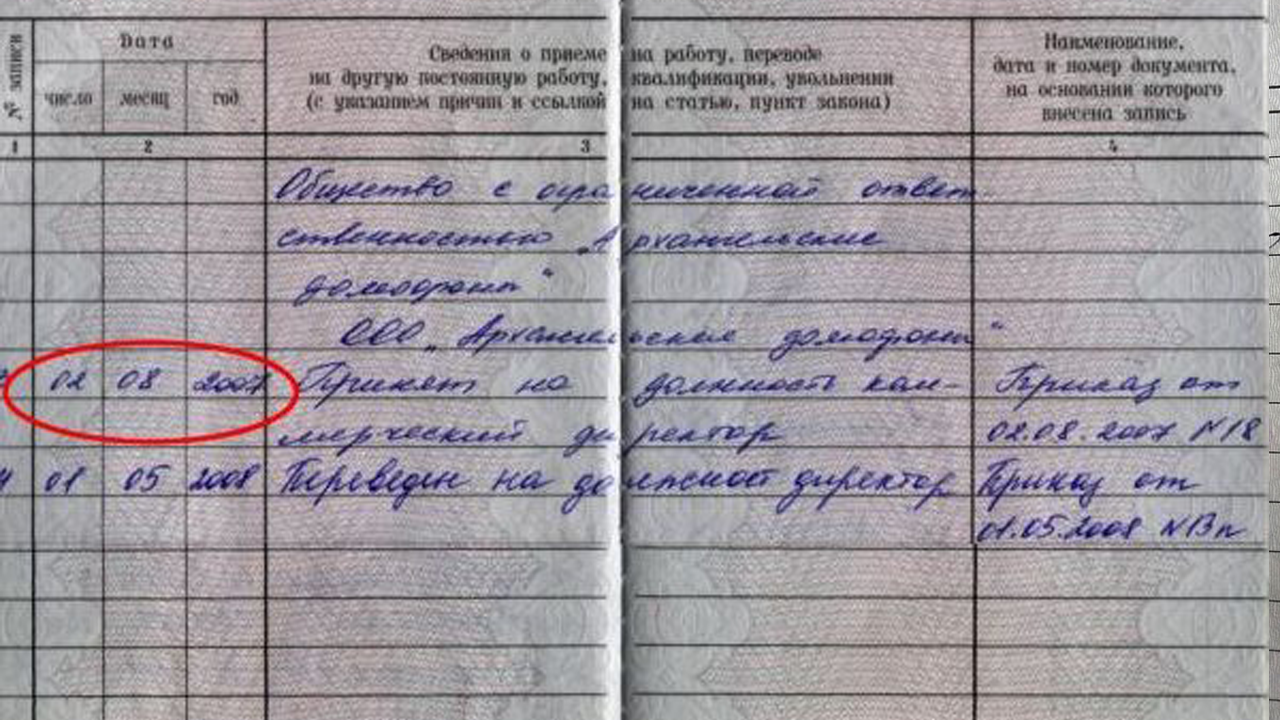 № записи
Дата
число месяц год
Сведения о приеме на работу, переводе
на другую постоянную работу, квалификации, увольнении
(с указанием причин и ссылкой на статью, пункт закона)
Наименование,
дата и номер документа,
на основании которого
внесена запись
1 2 3 4
Общество с ограниченной ответ-
ственностью „Архангельские
домофоны“
ООО „Архангельские домофоны“
02 08 2007 Принят на должность ком- Приказ от
мерческий директор 02.08.2007 N18
01 05 2008 Переведен на должност директор Приказ от
01.05.2008 N13п